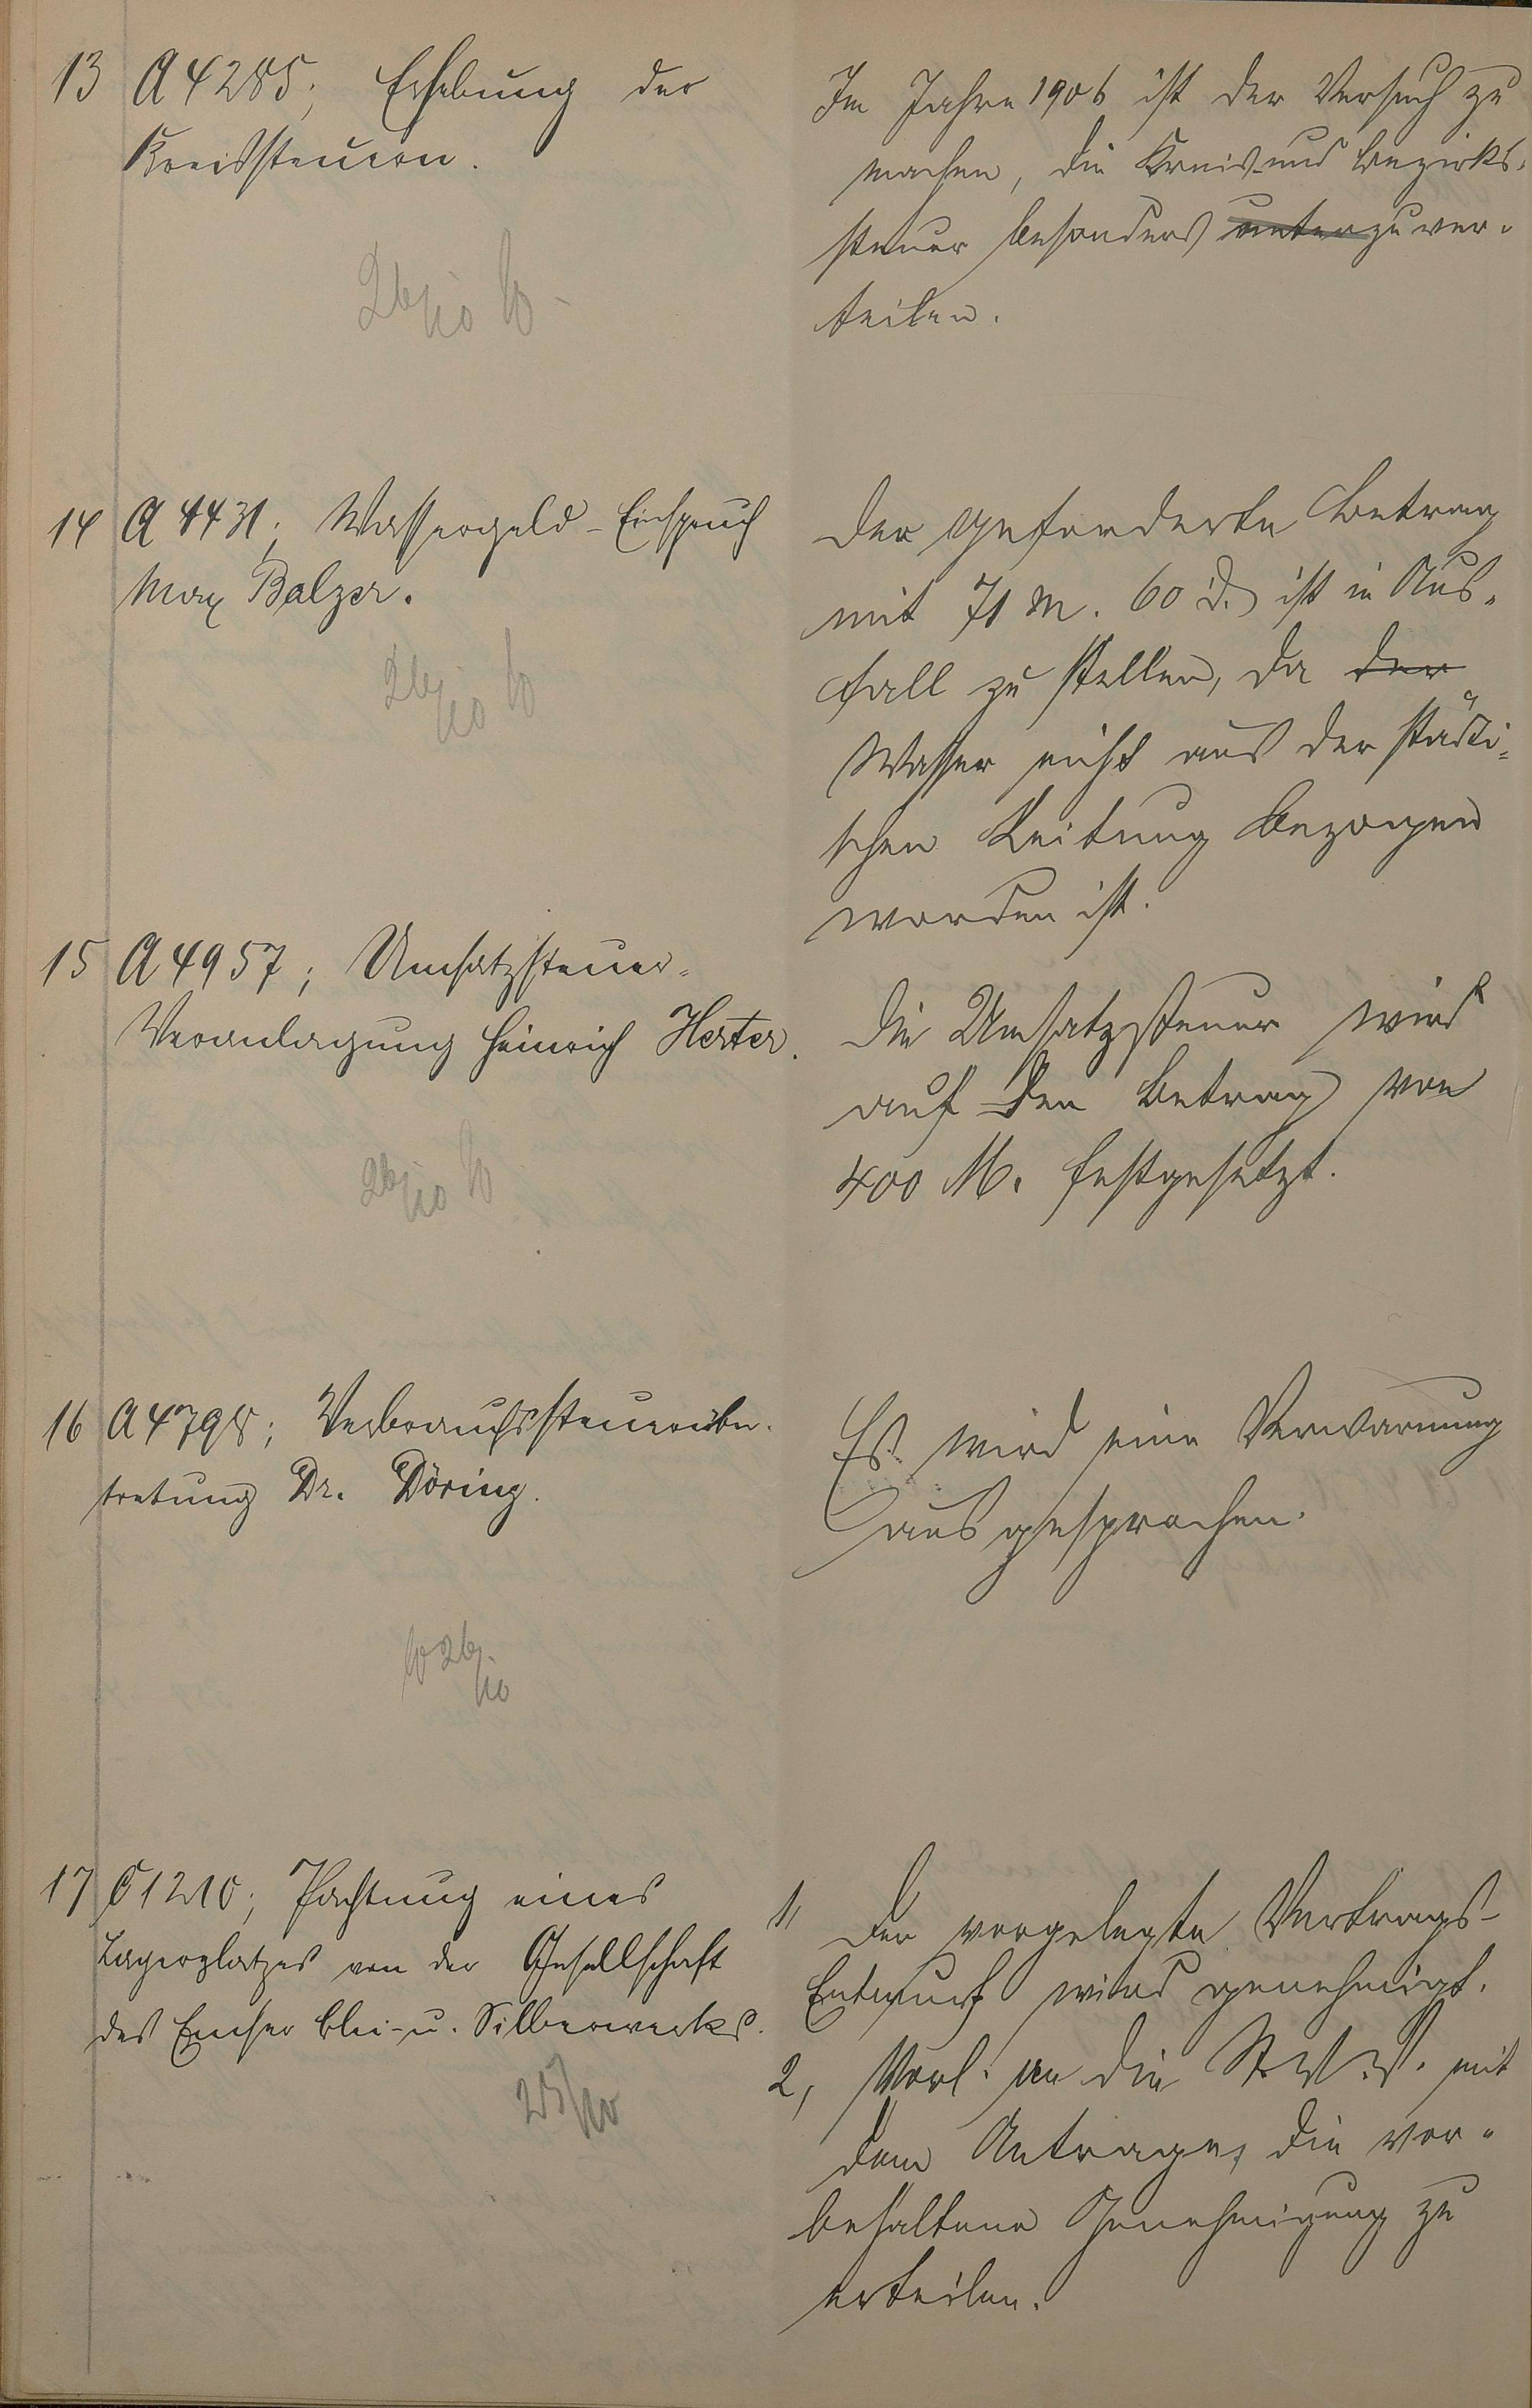 13 A 4285; Erhebung der
Kreissteuern.
26/10
Im Jahre 1906 ist der Versuch zu
machen, die Kreis- und Bezirks-
steuer besonders unter zu ver-
teilen.
14 A 4431; Wassergeld-Einspruch
Max Balzer.
26/10
Der geforderte Betrag
mit 71 M. 60 d. ist in Aus-
fall zu stellen, da der
Wasser nicht aus der städti-
schen Leitung bezogen
worden ist.
15 A 4957; Umsatzsteuer-
Veranlagung Heinrich Herter.
26/10
Die Umsatzsteuer wird
auf den Betrag von
400 M. festgesetzt.
16 A 4798; Verbrauchssteuerüber-
tretung Dr. Döring.
26/10
Es wird eine Verwarnung
ausgesprochen.
17 C 1210; Pachtung eines
Lagerplatzes von der Gesellschaft
des Emser Blei- u. Silberwerks.
25/10
1, Der vorgelegte Vertrags-
Entwurf wird genehmigt.
2, Vorl. an die St. V. V. mit
dem Antrage, die vor-
behaltene Genehmigung zu
erteilen.